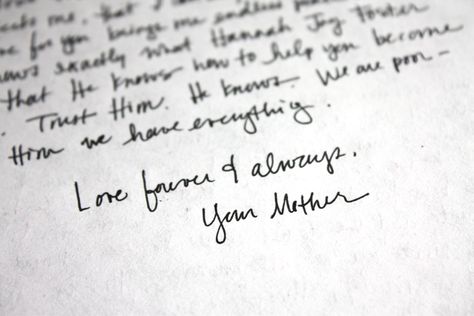 me, that I
for you brings me endless
exactly what Hannah Joy Foster
that He knows how to help you become
. Trust Him. He knows. We are poor –
Him we have everything.
Love forever & always.
Your Mother